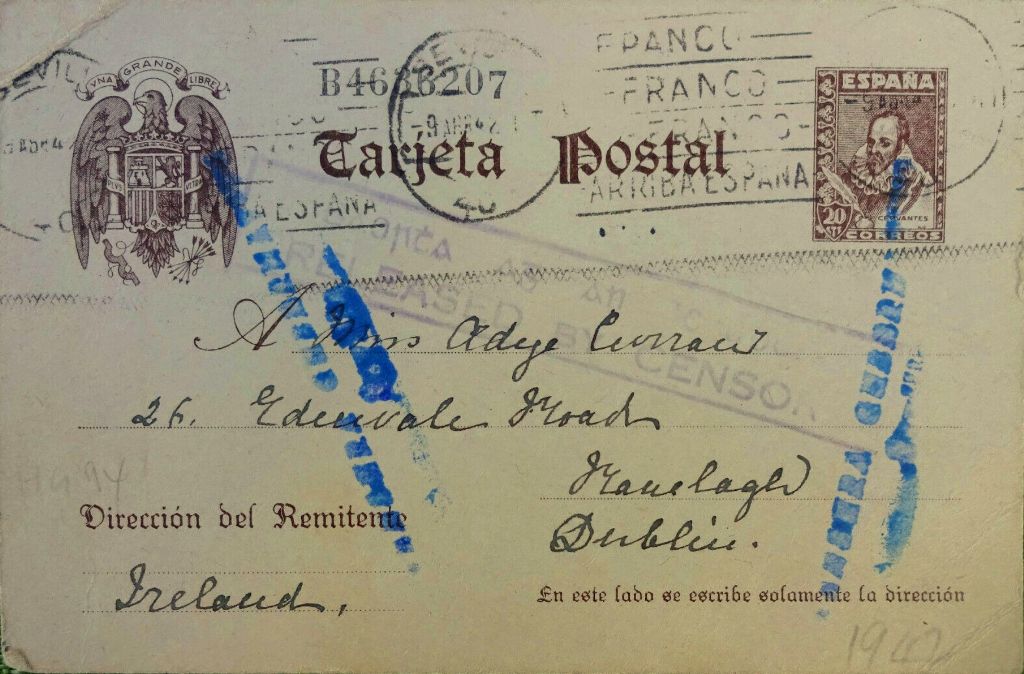 UNA GRANDE LIBRE
B4636207
FRANCO
FRANCO
FRANCO
ARRIBA ESPAÑA
BA ESPAÑA
-9 ABR 42
ESPAÑA
CERVANTES
20
CORREOS
Tarjeta Postal
RELEASED BY CENSOR
A Miss Adye Curran
26. Edenvale Road
Ranelagh
Dublin.
Dirección del Remitente
Ireland,
En este lado se escribe solamente la dirección
1942